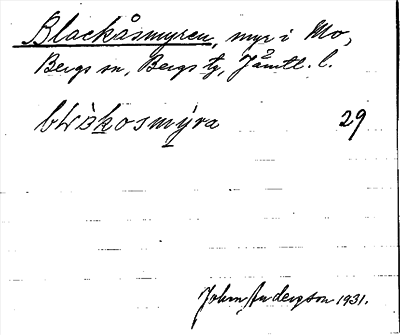 Blackåsmyren, myr i Mo,
Bergs sn, Bergs tg, Jämtl. l.
29
John Anderson 1931.